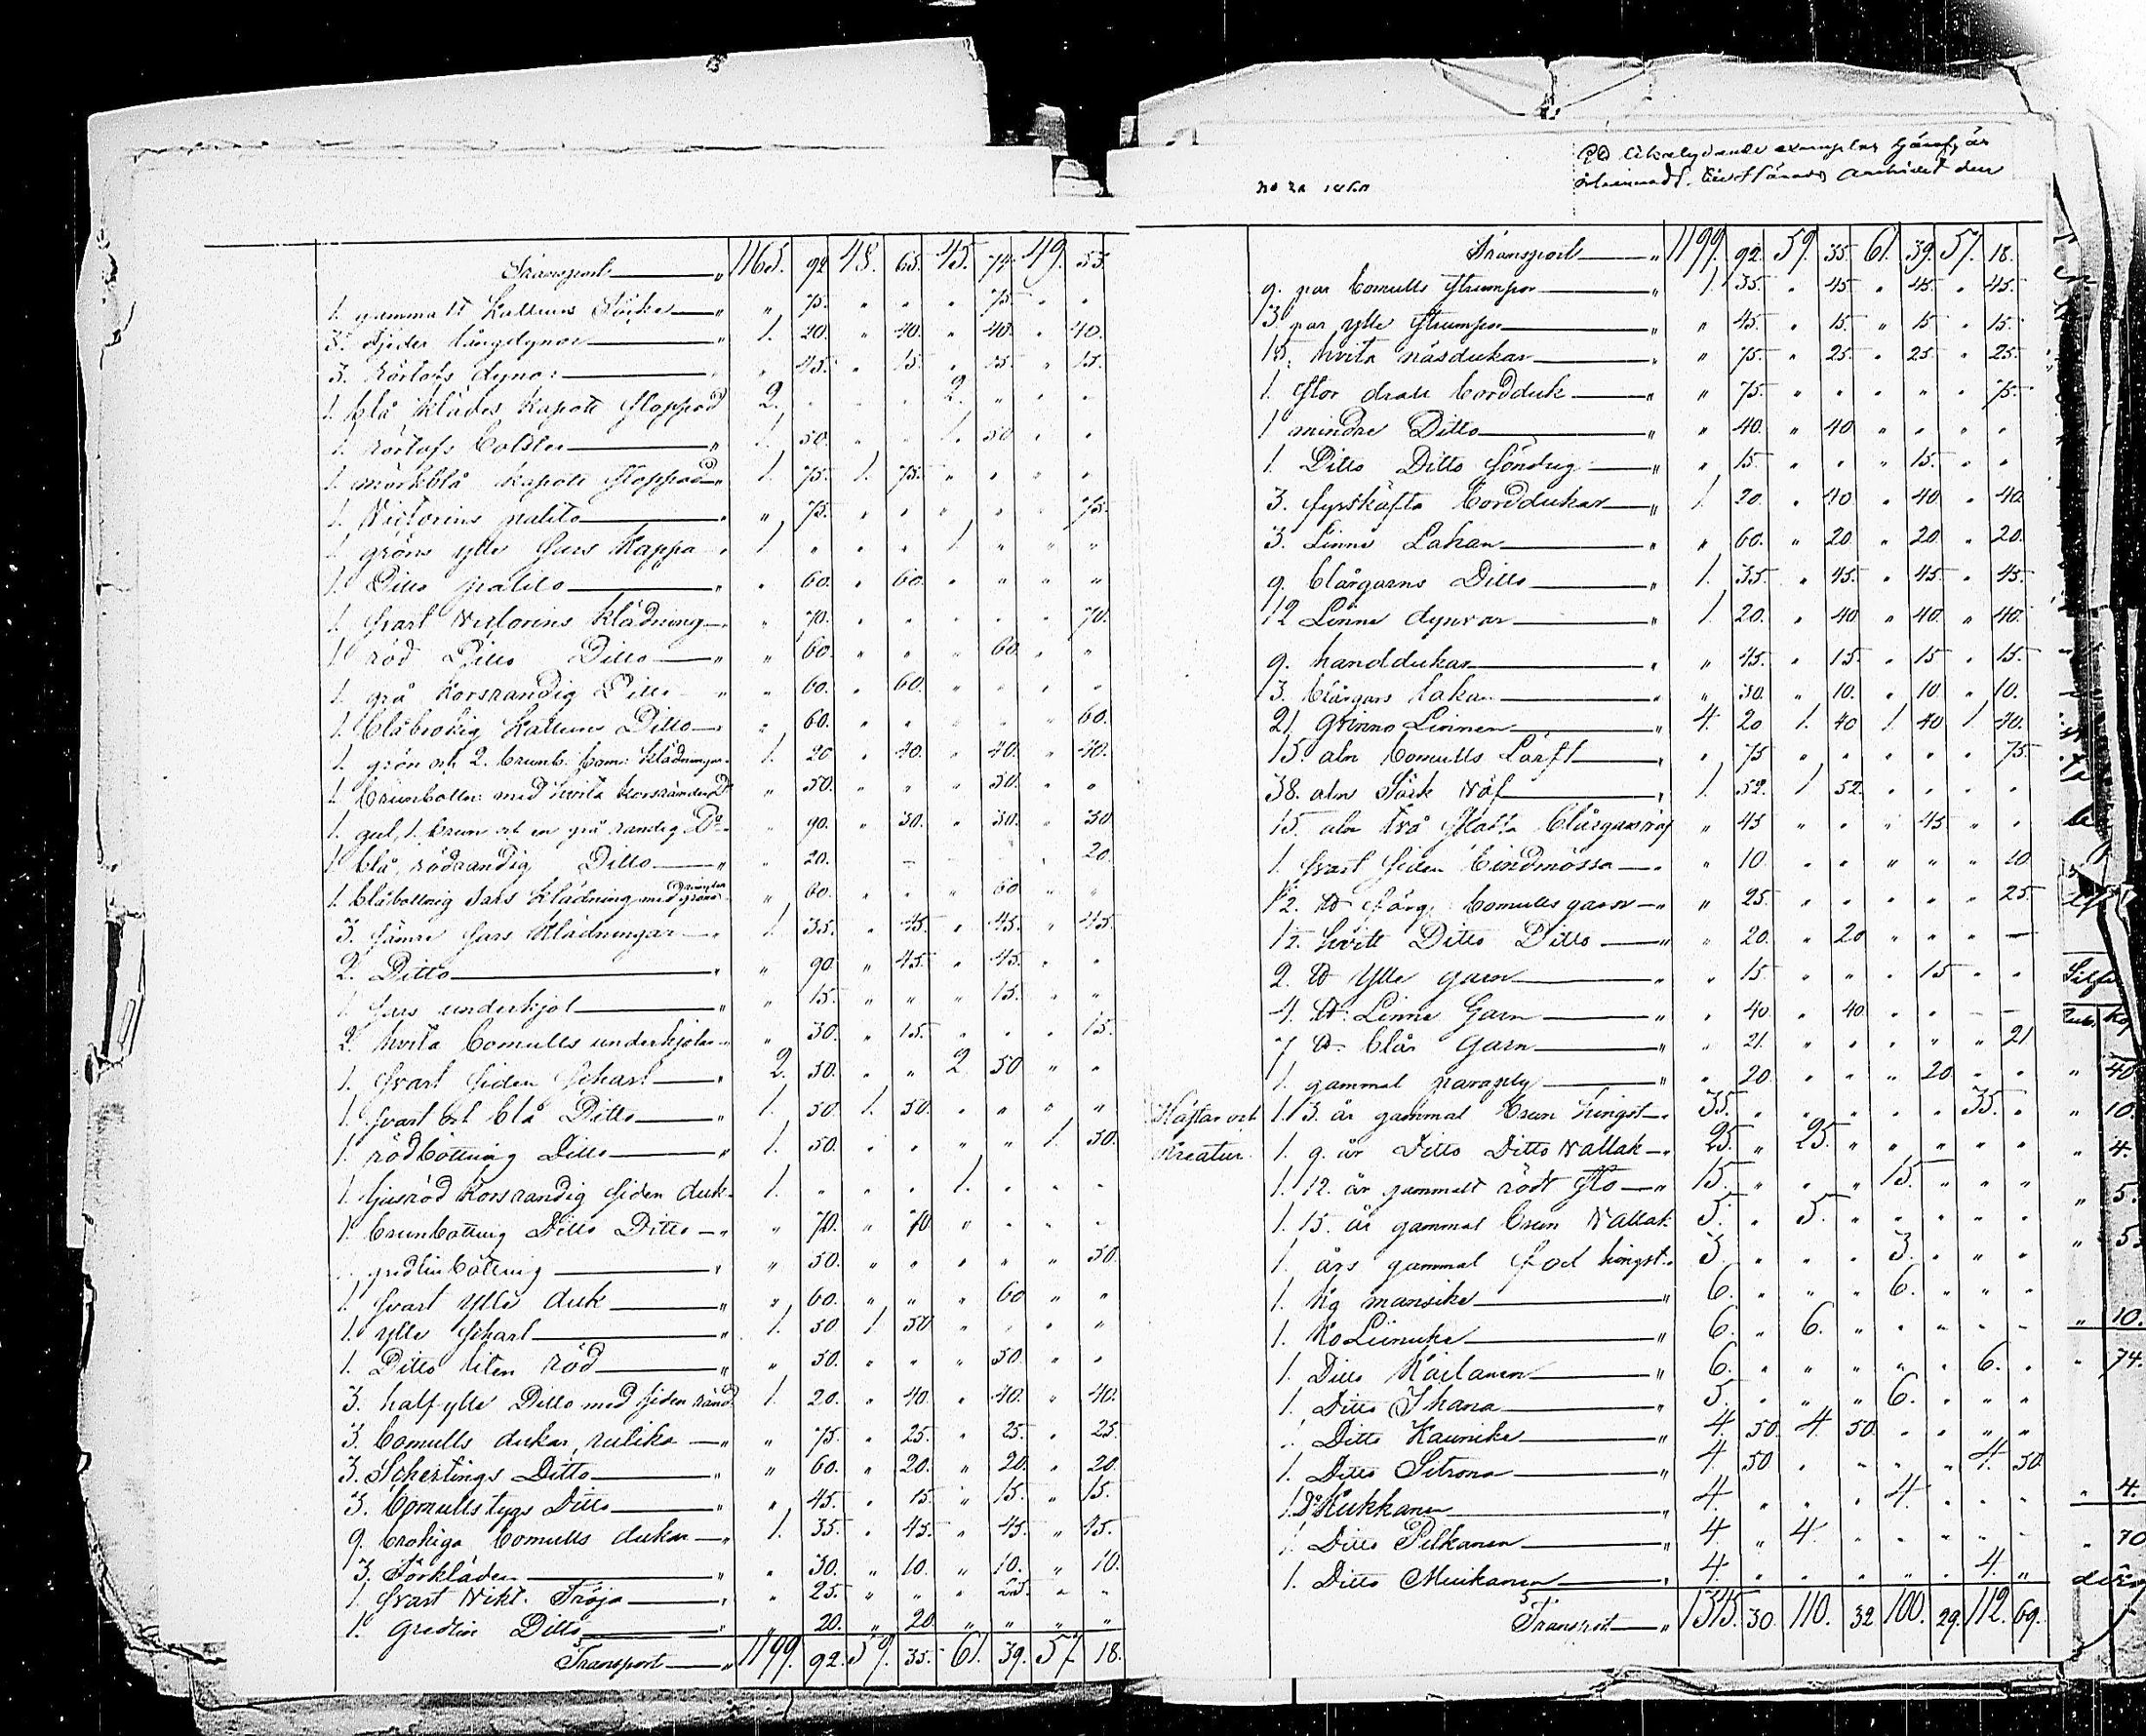 Transport — " 1165. 92 48. 65. 45. 74. 49. 53.
1. gammalt Kattuns Täcke — " " 75. " " " 75. " "
3. Fjeder långdynor — " 1. 20. " 40. " 40. " 40.
3. Rörtofs dynor — " 45. " 15. " 15. " 15.
1. blå klädes Kapott stoppad 2. " " " 2. " " "
1. rörtofs Bolster — " 1. 50. " " 1. 50 " "
1. mörkblå kapott stoppad — " 1. 75. 1. 75. " " " "
1. Victorins palito — " " 75. " " " " " 75.
1. gröns ylle sars Kappa — 1. " " " 1. " " "
1. Ditto palito — " 60. " 60. " " " "
1. svart Victorins Klädning — " 70. " " " " " 70.
1. röd Ditto Ditto — " " 60. " " " 60. " "
1. grå Korsrandig Ditto " " 60. " 60. " " " "
1. blåbrokig Kattuns Ditto — " 60. " " " " " 60.
1. grön och 2. brunb. bom: Klädningar. 1. 20 " 40. " 40. " 40.
1. brunbotn: med hvita korsränder D° " 50. " " " 50. " "
1. gul, 1. brun och en grå randig D° " 90. " 30. " 30. " 30
1. blå, rödrandig Ditto — " " 20. " " " " " 20.
1. blåbottnig sars Klädning med gröna " 60. " " " 60 " "
3. sämre sars Klädningar — 1. 35. " 45. " 45. " 45.
2. Ditto — " " 90 " 45. " 45. " "
1. sars underkjol — " " 15. " " " 15. " "
2. hvita bomulls underkjolar — " 30. " 15. " " " 15.
1. svart siden scharl — " 2. 50. " " 2. 50 " "
1. svart och blå Ditto — " 1. 50. 1. 50. " " " "
1. rödbottnig Ditto — " 1. 50. " " " " 1. 50.
1. ljusröd Korsrandig siden duk — 1. " " " 1. " " "
1. brunbottnig Ditto Ditto — " " 70. " 70. " " " "
" gredlinbottnig — " " 50. " " " " " 50.
1. svart ylle duk — " " 60. " " " 60 " "
1. ylle scharl — " 1. 50 1. 50 " " " "
1. Ditto liten röd — " " 50. " " " 50. " "
3. half ylle Ditto med siden rand 1. 20. " 40. " 40. " 40.
3. bomulls dukar, rutika — " " 75. " 25. " 25. " 25.
3. Schertings Ditto — " " 60. " 20. " 20. " 20.
3. bomulls tygs Ditto — " " 45. " 15. " 15. " 15.
9. brokiga bomulls dukar — " 1. 35. " 45. " 45. " 45.
3. Förkläden — " " 30. " 10. " 10. " 10.
1. svart Vikt. Tröja — " " 25. " " " 25. " "
1. gredlin Ditto — " " 20. " 20. " " " "
Transport — " 1199. 92. 59. 35. 61. 39. 57. 18.
likalydande exemplar
Archivet den
Transport — " 1199. 92. 59. 35. 61. 39. 57. 18.
9. par bomulls strumpor — " 1. 35. " 45. " 45. " 45.
3. par ylle strumpor — " " 45. " 15. " 15. " 15.
15. hvita näsdukar — " 75. " 25. " 25. " 25.
1. stor dräll bordduk — " " 75. " " " " " 75.
1 mindre Ditto — " " 40. " 40 " " " "
1. Ditto Ditto söndrig — " " 15. " " " 15. " "
3. fyrskäfta borddukar — " 1. 20. " 40. " 40. " 40
3. Linne Lakan — " " 60. " 20. " 20. " 20.
9. blårgarns Ditto — " 1. 35. " 45. " 45. " 45.
12 Linne dynvar — " 1. 20. " 40 " 40. " 40.
9. handdukar — " " 45. " 15. " 15. " 15.
3. blårgars lakan — " " 30. " 10. " 10. " 10.
21 qvinno Linnen — " 4. 20 1. 40 1. 40 1. 40.
15. aln bomulls Lärft — " " 75 " " " " " 75.
38. aln Säck Väf — " 1. 52. 1 52. " " " "
15. aln två blårgarnsväf " 45 " " " 45. " "
1. svart siden bindmössa — " 10. " " " " " 10
1/2. ℔ färg. bomulls garn — " " 25. " " " " " 25.
1/2 hvitt Ditto Ditto — " " 20. " 20 " " " —
2. ℔ ylle garn — " " 15 " " " 15 " "
4. ℔ Linne Garn — " " 40. " 40. " " — —
7 ℔ blår Garn — " " 21. " " " " " 21
1. gammal paraply — " " 20. " " " 20. " "
Hästar och 1. 3. år gammal brun hingst — " 35. " " " " " 35. "
Kreatur. 1. 9. år Ditto Ditto Vallak — " 25. " 25. " " " " "
1. 12. år gammalt rödt sto — " 15. " " " 15. " " "
1. 15. år gammal brun Vallak 5. " 5. " " " " "
1. års gammal hingst — 3. " " " 3. " " "
1. mansike — " 6. " " " 6. " " "
1. Ko — " 6. " 6. " " " " "
1. Ditto Kailanen — " 6. " " " " " 6. "
1. Ditto Ihana — " 5. " " " 6. " " "
1. Ditto Kaunike — " 4. 50. 4. 50. " " " "
1. Ditto Sitrona — " 4. 50 " " " " 4. 50
1. D° Kukkanen — " 4. " " " 4. " " "
1. Ditto Pelkanen — " 4. " 4. " " " " "
1. Ditto Muikanen — " 4. " " " " " 4. "
Transport — " 1345. 30. 110. 32. 100. 29. 112. 69.
Rub. Kop
" 40
" 10.
" 4.
" 5.
" 5.
" 10.
" 74.
" 4.
" 70